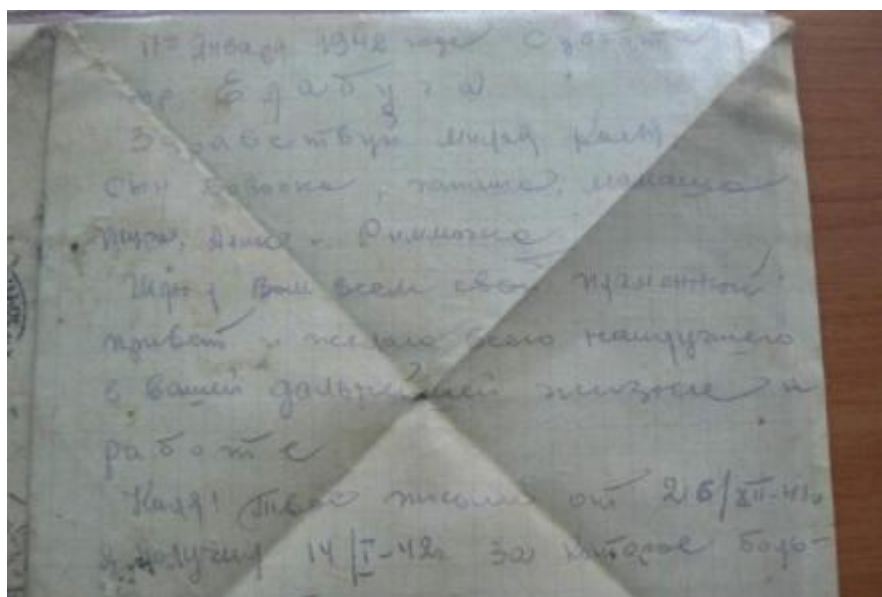 января 1942 года Суббота
гор Елабуга
Здравствуй милая Катя,
сын Вовочка, папаша, мамаша
Шура, Римма
Шлю я Вам всем свой пламенный
привет и желаю всего наилучшего
в вашей дальнейшей жизни и
работе
Катя! Твое письмо от 26/XII-41г.
я получил 14/I-42г за которое боль-